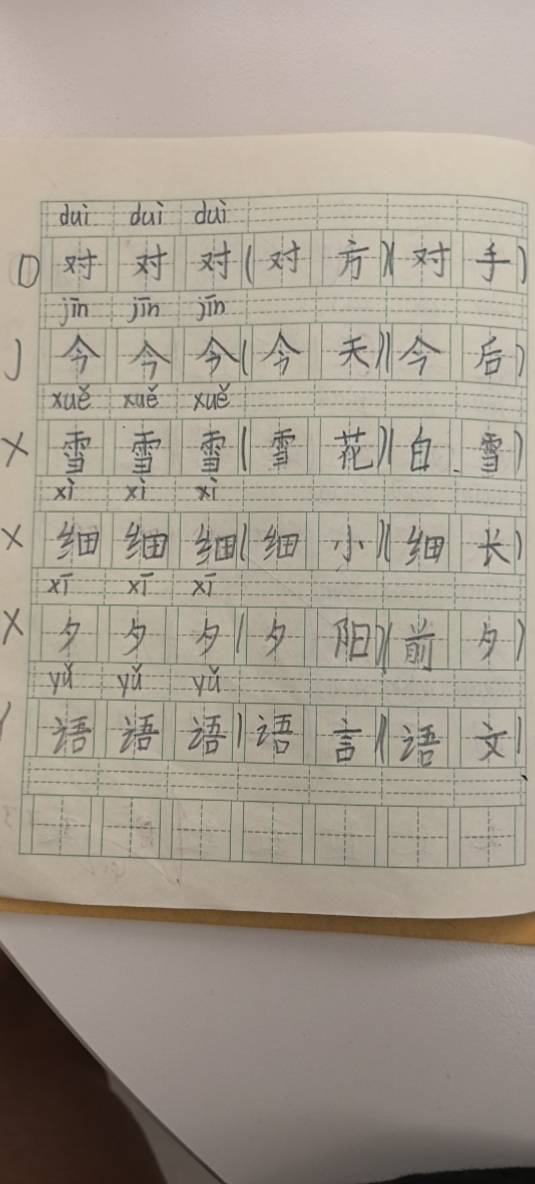 duì duì duì
D 对 对 对 ( 对 方 ) ( 对 手 )
jīn jīn jīn
J 今 今 今 ( 今 天 ) ( 今 后 )
xuě xuě xuě
X 雪 雪 雪 ( 雪 花 ) ( 白 雪 )
xì xì xì
X 细 细 细 ( 细 小 ) ( 细 长 )
xī xī xī
X 夕 夕 夕 ( 夕 阳 ) ( 前 夕 )
yǔ yǔ yǔ
语 语 语 ( 语 言 ) ( 语 文 )